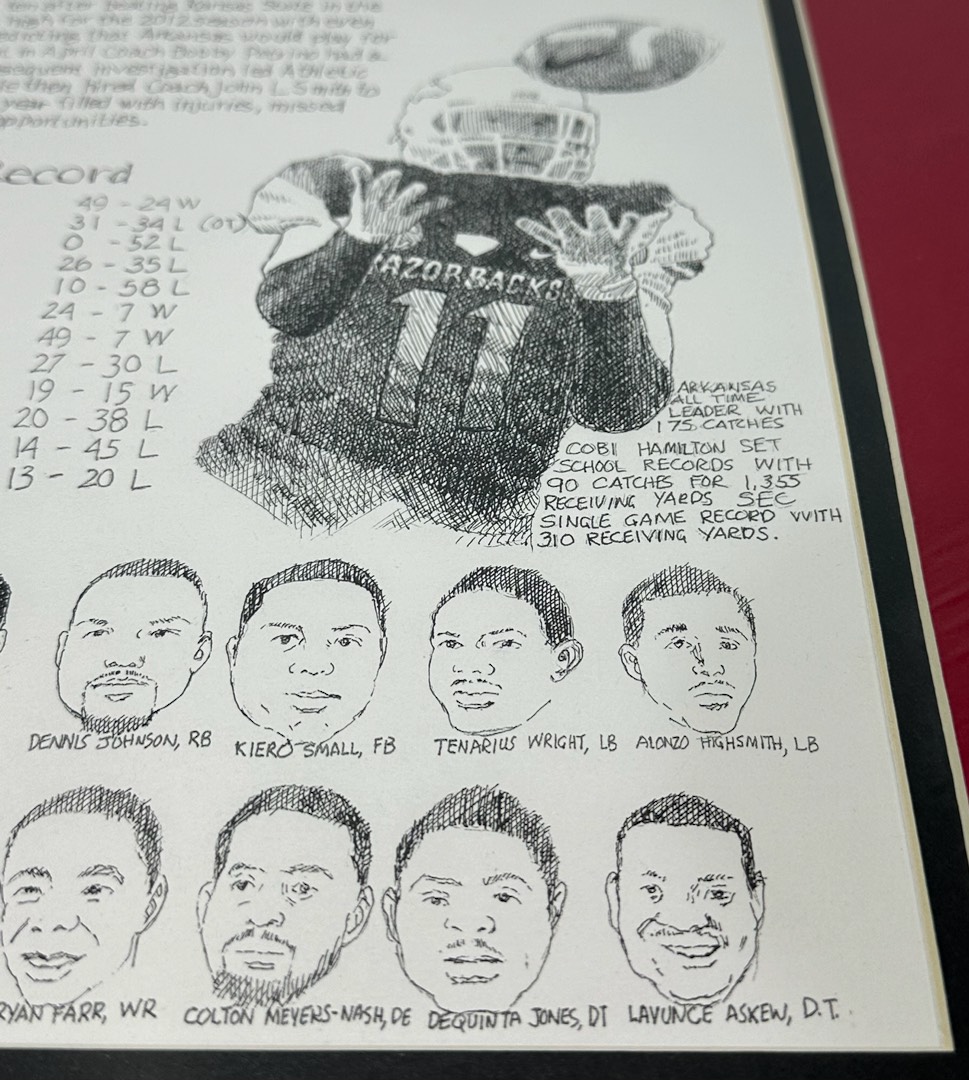 ten after beating Kansas State in the
high for the 2012 season with even
that Arkansas would play for
in April Coach Bobby Petrino had a
investigation led Athletic
then hired Coach John L Smith to
year filled with injuries, missed
opportunities.
Record
49 - 24 W
31 - 34 L (OT)
0 - 52 L
26 - 35 L
10 - 58 L
24 - 7 W
49 - 7 W
27 - 30 L
19 - 15 W
20 - 38 L
14 - 45 L
13 - 20 L
RAZORBACKS
11
ARKANSAS
ALL TIME
LEADER WITH
175 CATCHES
COBI HAMILTON SET
SCHOOL RECORDS WITH
90 CATCHES FOR 1,355
RECEIVING YARDS SEC
SINGLE GAME RECORD WITH
310 RECEIVING YARDS.
DENNIS JOHNSON, RB
KIERO SMALL, FB
TENARIUS WRIGHT, LB
ALONZO HIGHSMITH, LB
RYAN FARR, WR
COLTON MEYERS-NASH, DE
DEQUINTA JONES, DT
LAVUNCE ASKEW, D.T.